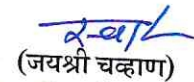 (जयश्री चव्हाण)